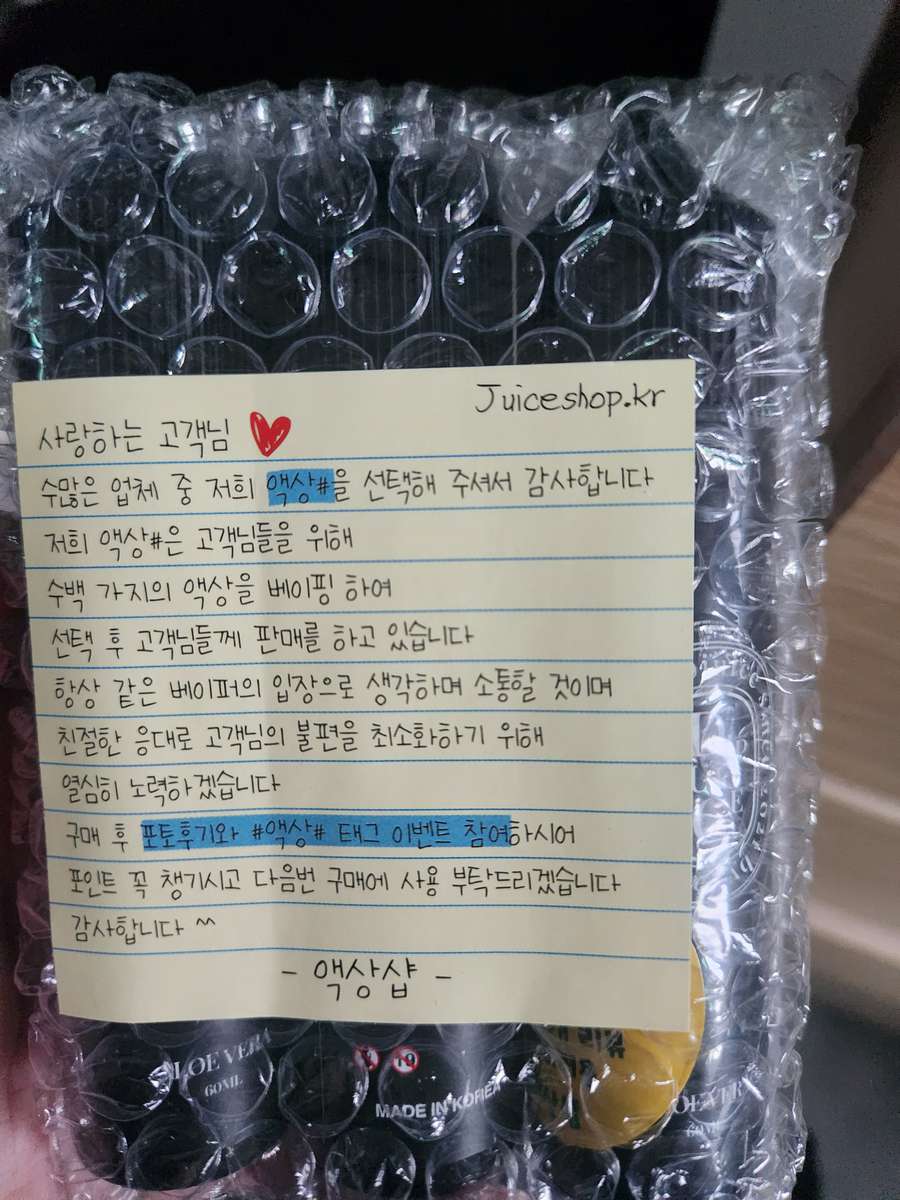 Juiceshop.kr
사랑하는 고객님
수많은 업체 중 저희 액상#을 선택해 주셔서 감사합니다
저희 액상#은 고객님들을 위해
수백 가지의 액상을 베이핑 하여
선택 후 고객님들께 판매를 하고 있습니다
항상 같은 베이퍼의 입장으로 생각하며 소통할 것이며
친절한 응대로 고객님의 불편을 최소화하기 위해
열심히 노력하겠습니다
구매 후 포토후기와 #액상# 태그 이벤트 참여하시어
포인트 꼭 챙기시고 다음번 구매에 사용 부탁드리겠습니다
감사합니다 ^^
- 액상샵 -
ALOE VERA
60ML
19
MADE IN KOREA
60ML